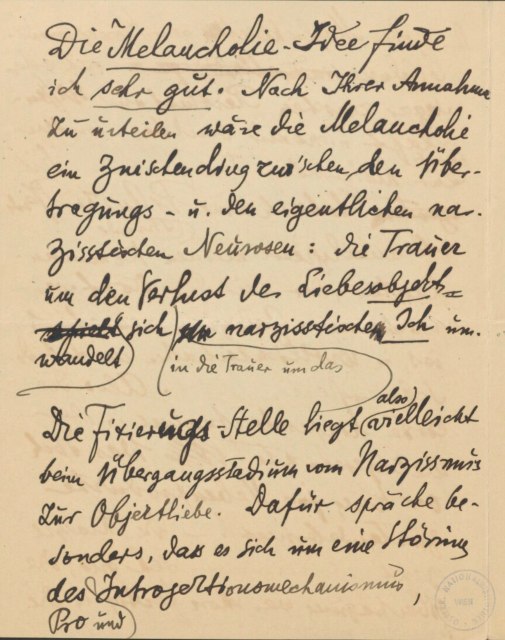 Die "Melancholie"-Idee finde
ich sehr gut. Nach Ihrer Annahme
zu urteilen wäre die Melancholie
ein Zwischending zwischen den Über-
tragungs- u. den eigentlichen nar-
zisstischen Neurosen: die Trauer
um den Verlust des Liebesobjekts
sich narzisstische Ich um-
wandelt
in die Trauer um das
also
Die Fixierungs-Stelle liegt vielleicht
beim Übergangsstadium vom Narzissmus
zur Objektliebe. Dafür spräche be-
sonders, dass es sich um eine Störung
des Introjektionsmechanismus,
Pro und